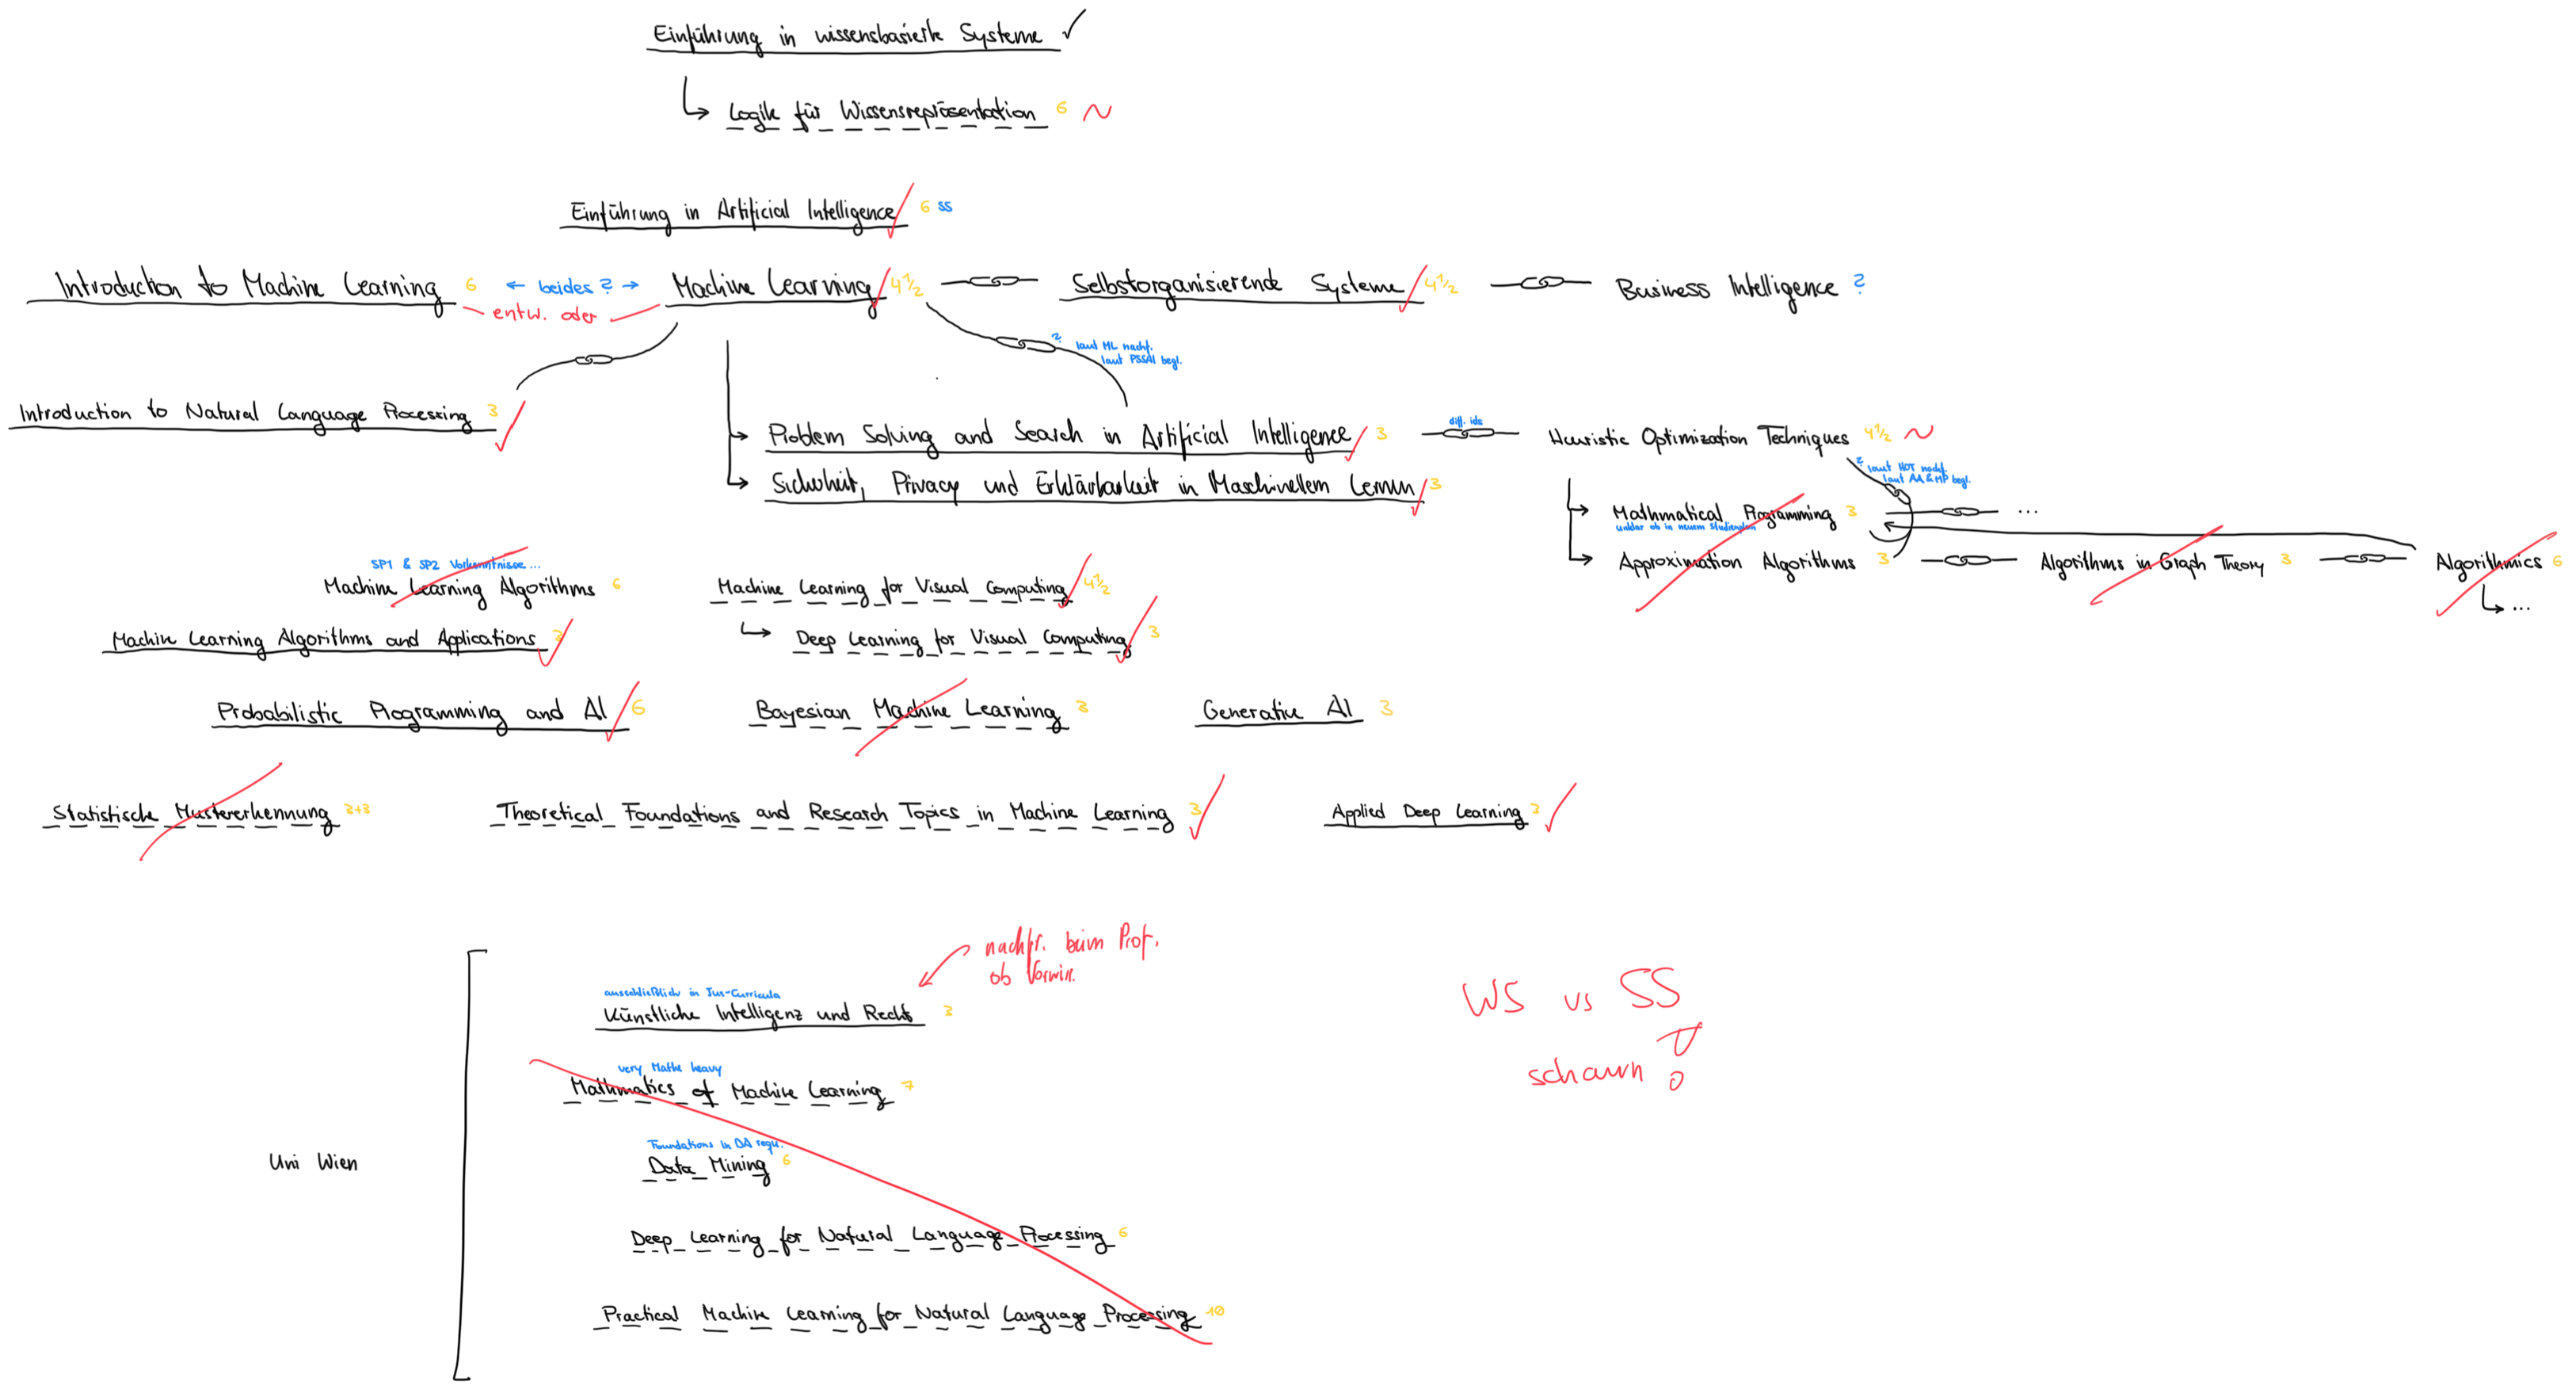 Einführung in wissensbasierte Systeme ✓
Logik für Wissensrepräsentation 6 ~
Einführung in Artificial Intelligence 6 SS
Introduction to Machine Learning 6 ← beides ? → Machine Learning 4 1/2 Selbstorganisierende Systeme 4 1/2 Business Intelligence ?
entw. oder
? laut ML nachf.
laut PSSAI begl.
Introduction to Natural Language Processing 3
diff. ids
Problem Solving and Search in Artificial Intelligence 3 Heuristic Optimization Techniques 4 1/2 ~
? laut HOT nachf.
laut AA & MP begl.
Sicherheit, Privacy und Erklärbarkeit in Maschinellem Lernen 3
Mathematical Programming 3 ...
unklar ob in neuem Studienplan
Approximation Algorithms 3 Algorithms in Graph Theory 3 Algorithmics 6
...
SP1 & SP2 Vorkenntnisse ...
Machine Learning Algorithms 6 Machine Learning for Visual Computing 4 1/2
Machine Learning Algorithms and Applications 3 Deep Learning for Visual Computing 3
Probabilistic Programming and AI 6 Bayesian Machine Learning 3 Generative AI 3
Statistische Mustererkennung 3+3 Theoretical Foundations and Research Topics in Machine Learning 3 Applied Deep Learning 3
nachfr. beim Prof.
ob Vorwiss.
ausschließlich in Jus-Curricula
Künstliche Intelligenz und Recht 3
WS vs SS
schauen !
very Mathe heavy
Mathematics of Machine Learning 7
Foundations in DA requ.
Uni Wien
Data Mining 6
Deep Learning for Natural Language Processing 6
Practical Machine Learning for Natural Language Processing 10